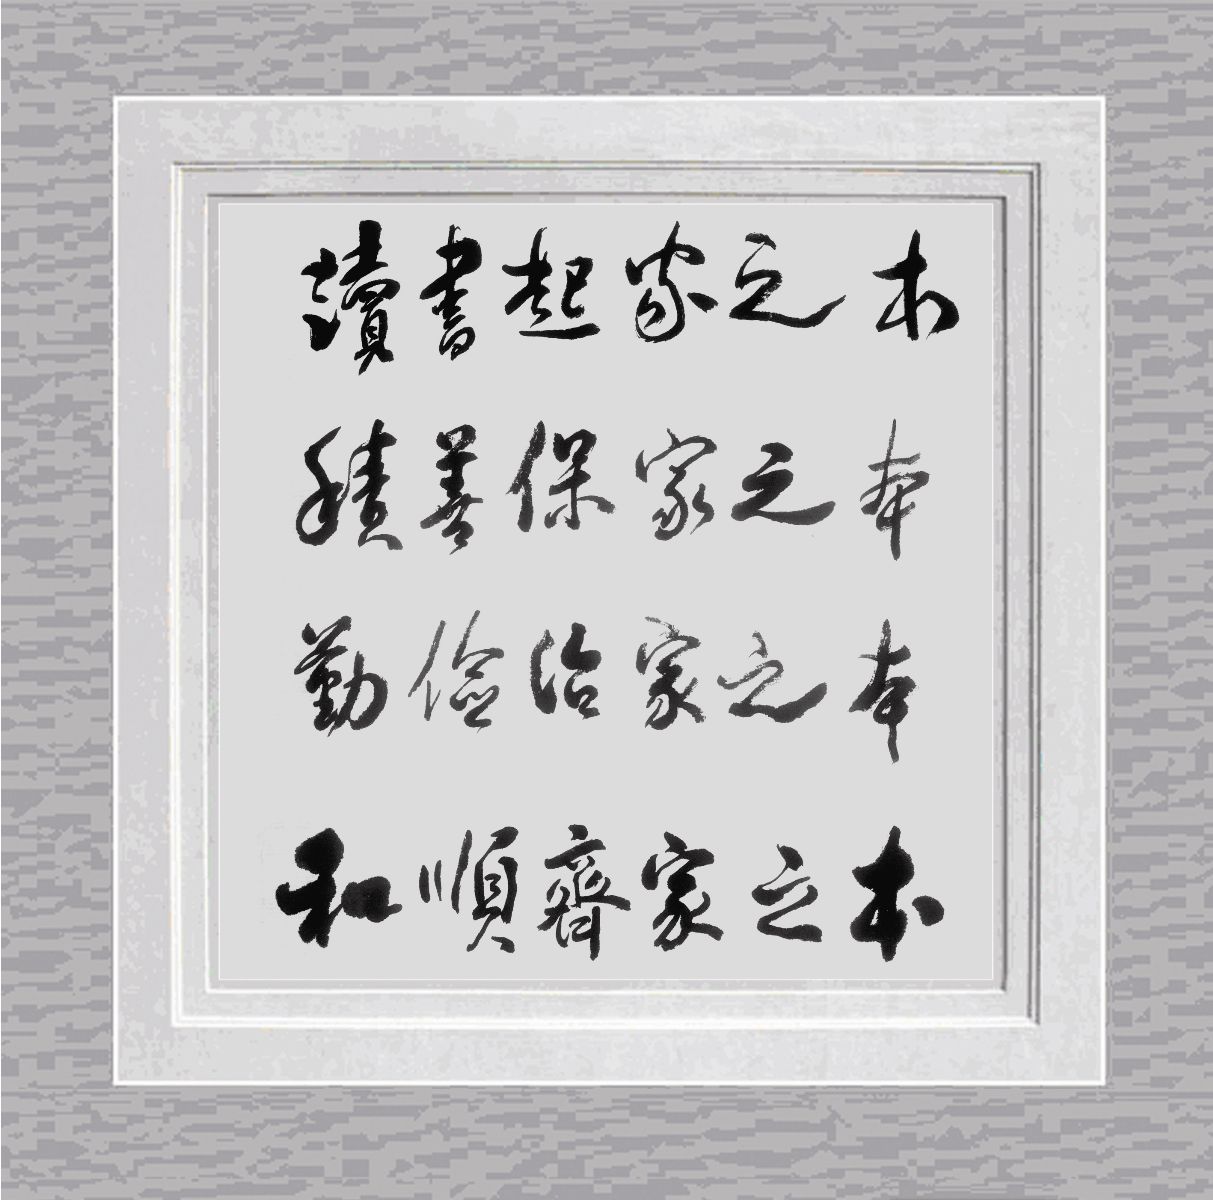 讀書起家之本
積善保家之本
勤儉治家之本
和順齊家之本